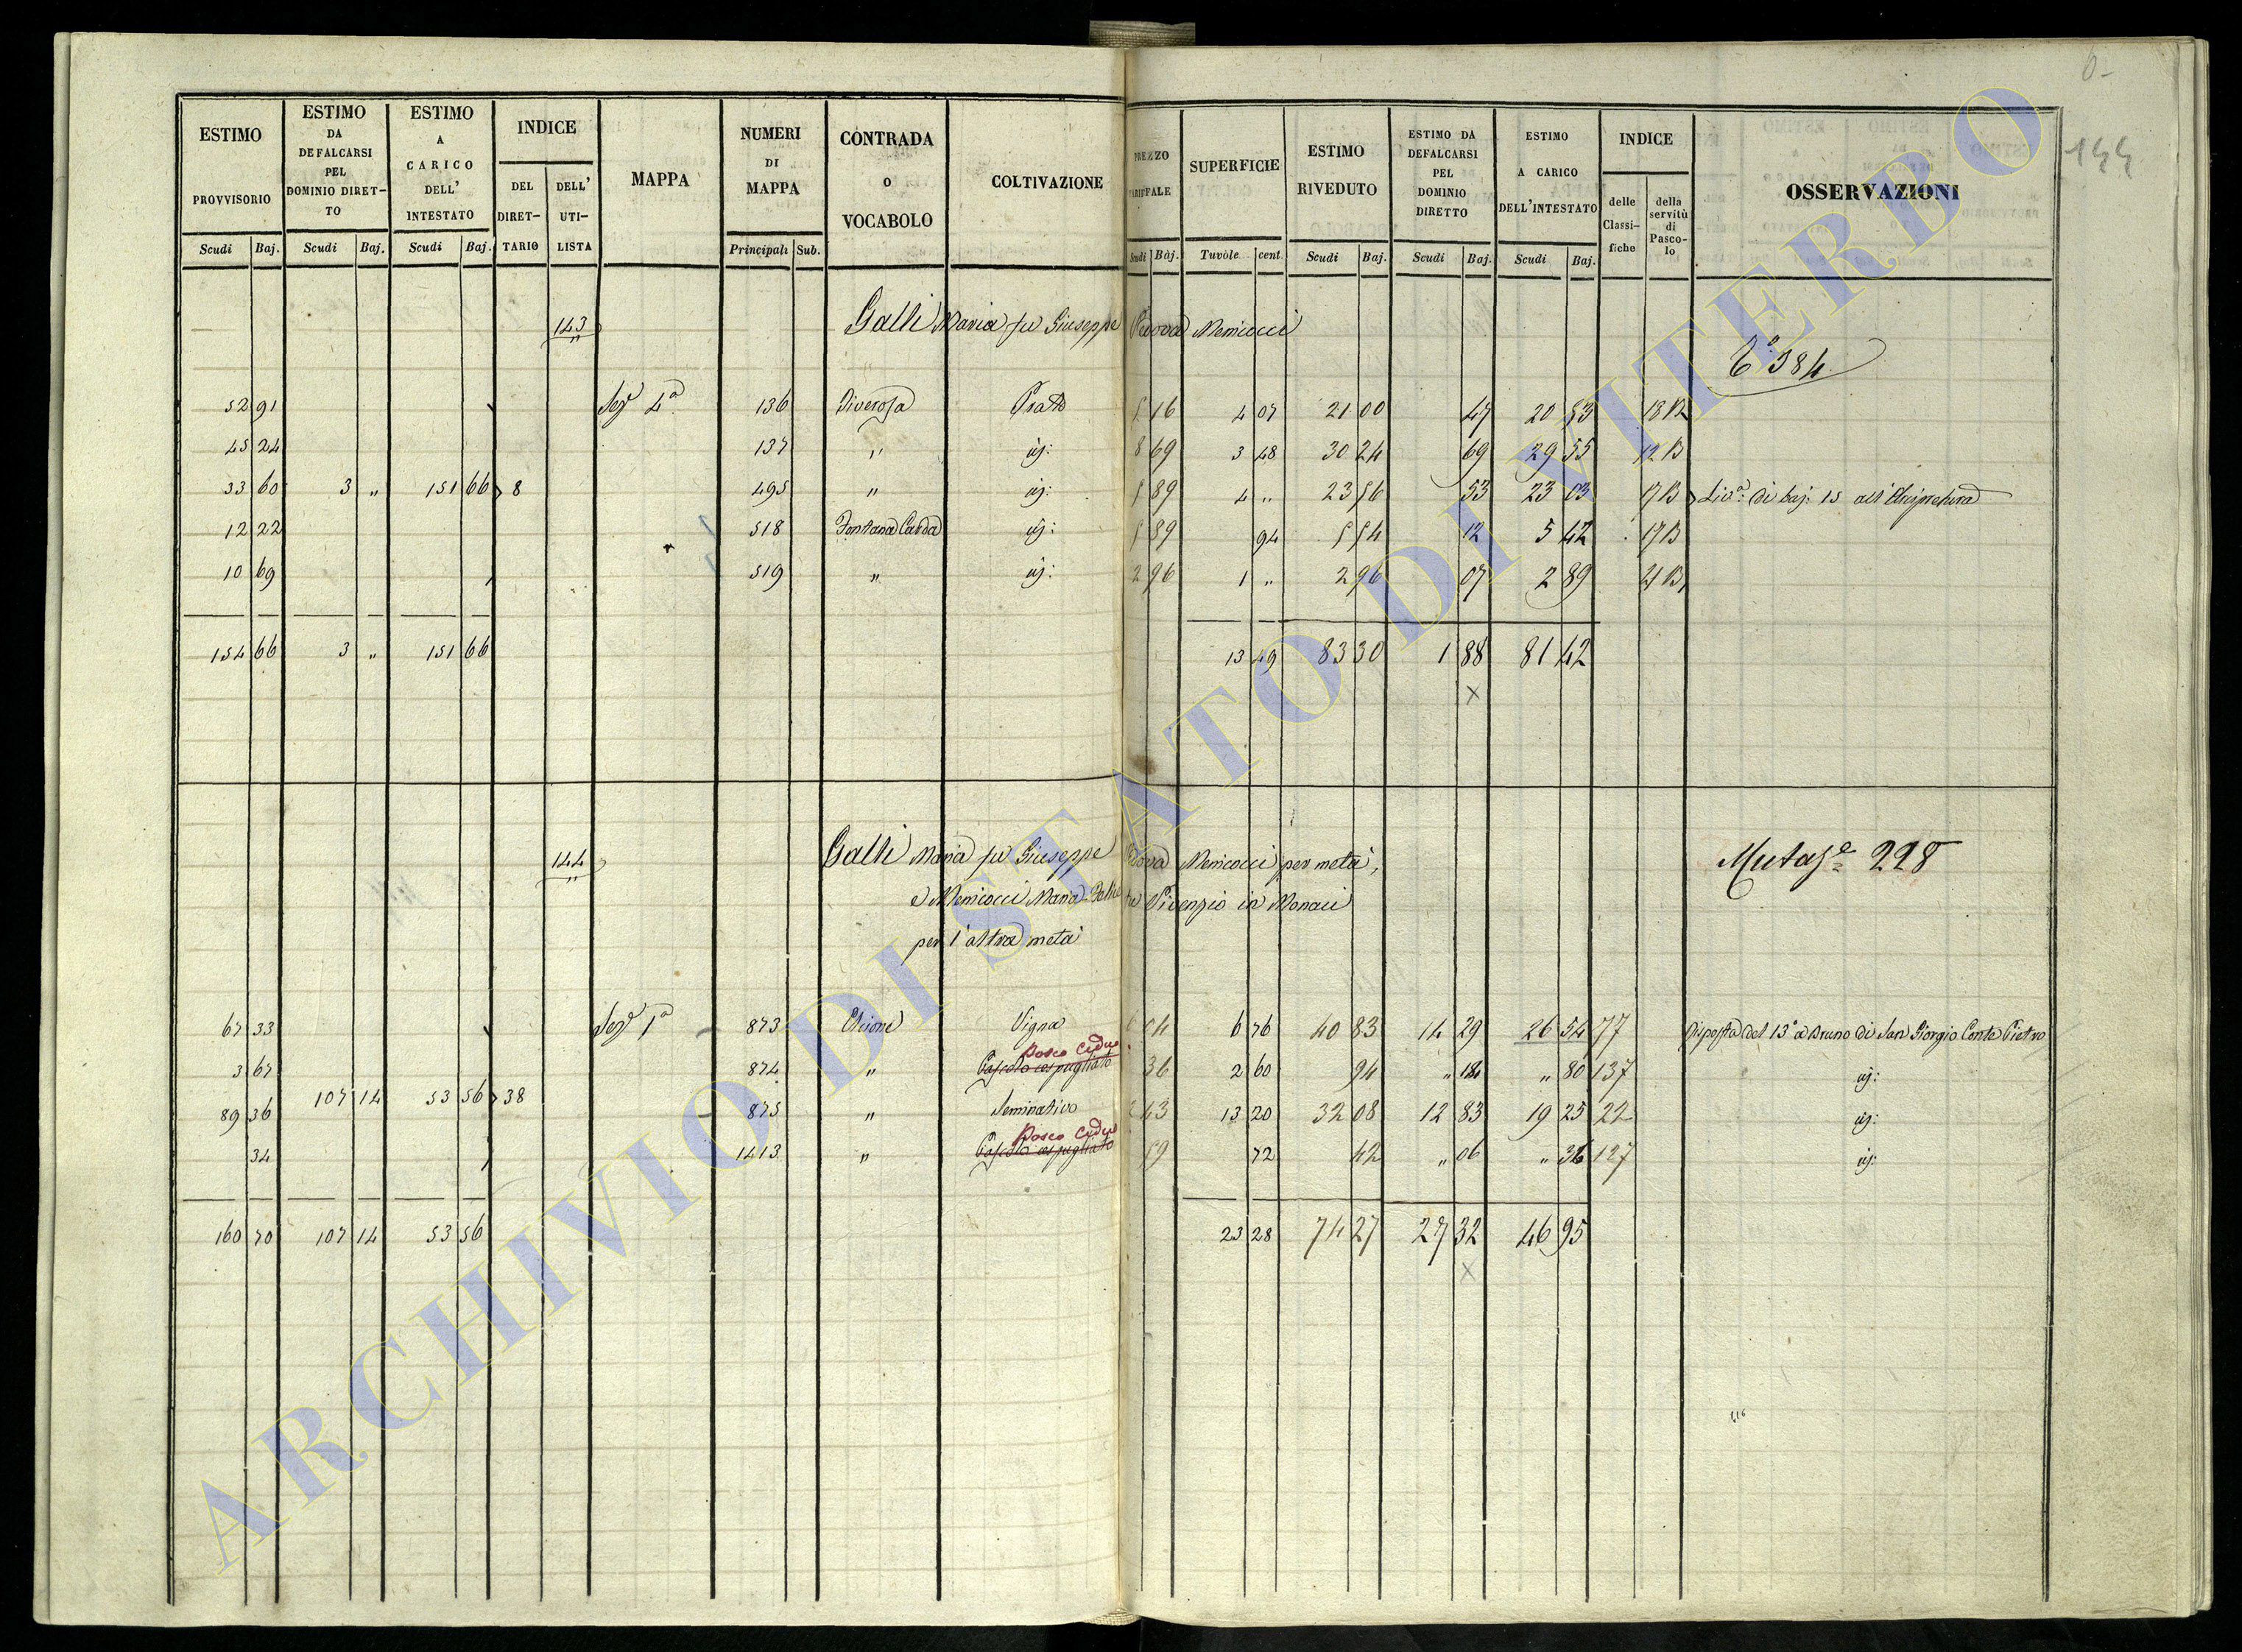 0-
144
ESTIMO PROVVISORIO
ESTIMO DA DEFALCARSI PEL DOMINIO DIRET-TO
ESTIMO A CARICO DELL' INTESTATO
INDICE
DEL DIRET-TARIO
DELL' UTI-LISTA
MAPPA
NUMERI DI MAPPA
CONTRADA O VOCABOLO
COLTIVAZIONE
PREZZO TARIFFALE
SUPERFICIE
ESTIMO RIVEDUTO
ESTIMO DA DEFALCARSI PEL DOMINIO DIRETTO
ESTIMO A CARICO DELL'INTESTATO
INDICE
delle Classi-fiche
della servitù di Pasco-lo
OSSERVAZIONI
Scudi Baj. Scudi Baj. Scudi Baj. Principali Sub. Scudi Baj. Tuvole cent. Scudi Baj. Scudi Baj. Scudi Baj.
143 Galli Maria fu Giuseppe Vedova Menicocci
T.° 384
52 91 Sez.e 4a 136 Diverosa Prato 5 16 4 07 21 00 47 20 53 18 B
45 24 137 " id: 8 69 3 48 30 24 69 29 55 12 B
33 60 3 " 151 66 8 495 " id: 5 89 4 " 23 56 53 23 03 17 B Liv.o: di baj: 15 all'Arcipretura
12 22 518 Fontana Carda id: 5 89 94 5 54 12 5 42 17 B
10 69 519 " id: 2 96 1 " 2 96 07 2 89 21 B
154 66 3 " 151 66 13 49 83 30 1 88 81 42
x
144 Galli Maria fu Giuseppe Vedova Menicocci per metà,
Mutaz.e 228
e Menicocci Maria Vicenzio in Monaci
per l'altra metà
67 33 Sez.e 1a 873 Vigna 6 04 6 76 40 83 14 29 26 54 77 Risposta del 13° a Bruno di San Giorgio Conte Pietro
Bosco Ceduo
3 67 874 " Pascolo cespugliato 36 2 60 94 " 14 " 80 137 id:
107 14 53 56 38
89 36 875 " Seminativo 2 43 13 20 32 08 12 83 19 25 22 id:
Bosco Ceduo
34 1413 " Pascolo cespugliato 59 72 42 " 06 " 36 127 id:
160 70 107 14 53 56 23 28 74 27 27 32 46 95
x
ARCHIVIO DI STATO DI VITERBO